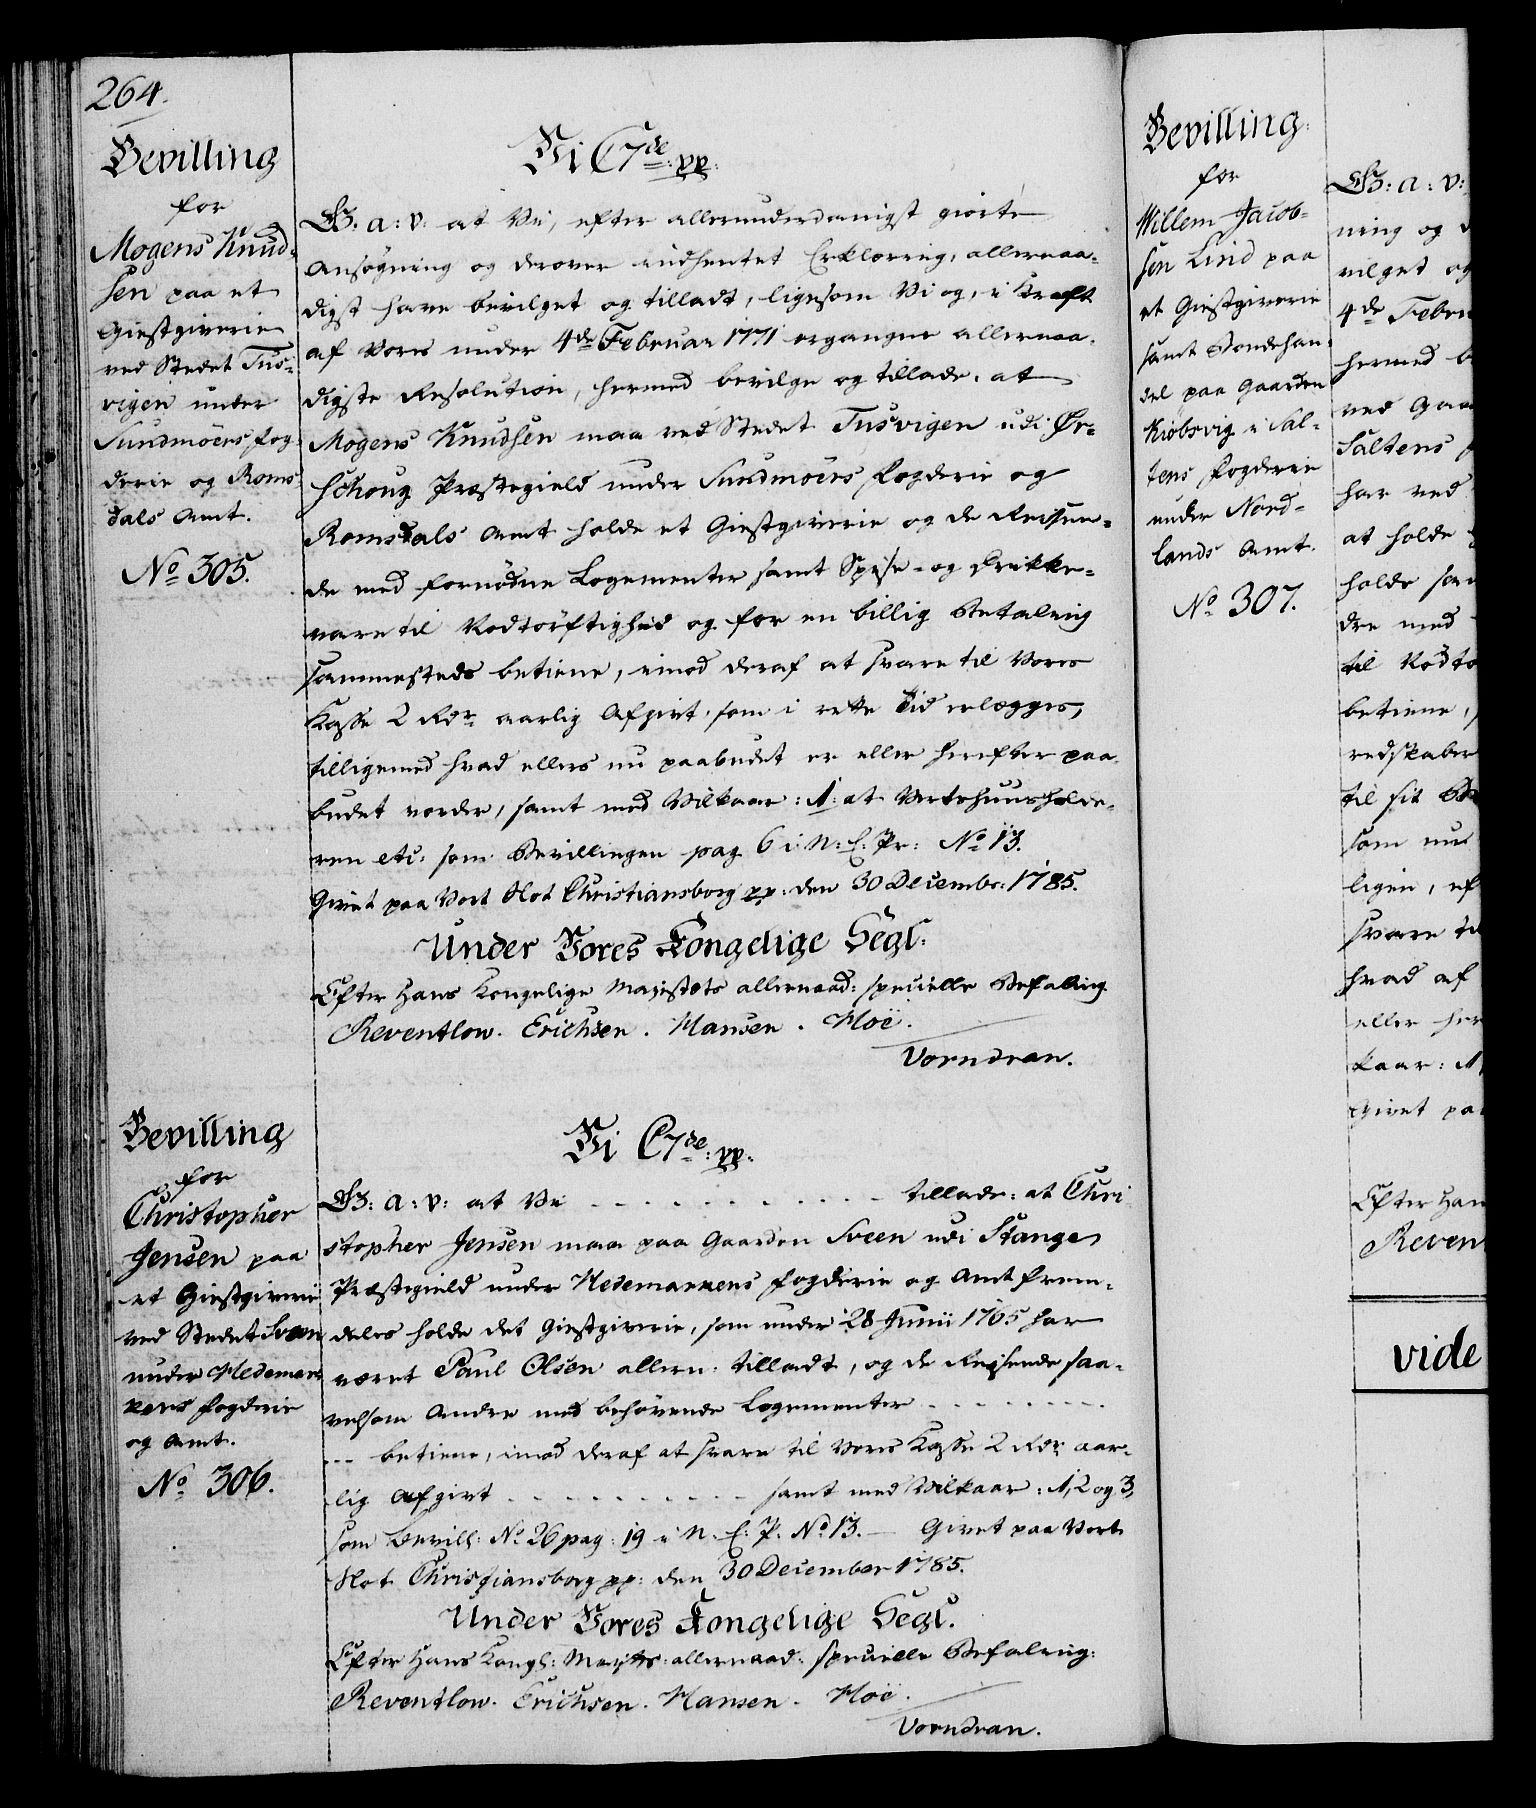 264.
Bevilling
for
Mogens Knud-
sen paa et
Giestgiverie
ved Stedet Tus-
vigen under
Sundmöers fog-
derie og Roms
dals Amt.
No 305.
Vi C7de: pp.
G. a: v: at Vi, efter allerunderdanigst giorte
Ansögning og derover indhentet Erklæring, allernaa-
digst have bevilget og tilladt, ligesom Vi og, i Kraft
af Vores under 4de Februar 1771 ergangne allernaa-
digste Resolution, hermed bevilge og tillade, at
Mogens Knudsen maa ved Stedet Tusvigen udi Ör-
schoug Præstegield under Sundmöers fogderie og
Romsdals Amt holde et Giestgiverie og de Reisen-
de med fornödne Logementer samt Spise- og Drikke-
vare til Nödtörftighed og for en billig Betaling
sammesteds betiene, imod deraf at svare til Vores
Kasse 2 Rdr aarlig Afgivt, som i rette Tid erlægges,
tilligemed hvad ellers nu paabudet er eller herefter paa
budet vorder, samt med Vilkaar: 1, at Vertshuusholde-
ren etc: som Bevillingen pag 6 i N: E: Pr: No 13.
Givet paa Vort Slot Christiansborg pp: den 30 Decembr: 1785.
Under Vores Kongelige Segl.
Efter Hans Kongelige Majestets allernaad: specielle Befaling
Reventlow. Erichsen. Hansen. Hoë.
Vorndran.
Bevilling
for
Christopher
Jensen paa
et Giestgiverie
ved Stedet Sveen
under Hedemar-
kens fogderie
og Amt.
No 306.
Vi C7de: pp.
G: a: v: at Vi - - - - - - - - - tillade: at Chri
stopher Jensen maa paa Gaarden Sveen udi Stange
Præstegield under Hedemarkens fogderie og Amt frem-
deles holde det Giestgiverie, som under 28 Junii 1765 har
været Paul Olsen allern: tilladt, og de Reisende saa-
velsom Andre med behövende Logementer - - - - - - - -
- - - betiene, imod deraf at svare til Vores Kasse 2 Rdr aar-
lig Afgivt - - - - - - - - - - samt med Vilkaar: 1, 2 og 3,
som Bevill: No 26 pag: 19 i N: E: P: No 13. — Givet paa Vort
Slot Christiansborg pp: den 30 December 1785.
Under Vores Kongelige Segl.
Efter Hans Kongl: Majts: allernaad: specielle Befaling:
Reventlow. Erichsen. Hansen. Hoë.
Vorndran.
Bevilling
for
Willem Jacob-
sen Lind paa
et Giestgiverie
samt Bondehan-
del paa Gaarden
Kiöbsvig i Sal-
tens fogderie
under Nord-
lands Amt.
No 307.
G: a: v:
ning og
vilget og
4de Febru
hermed b
ved Gaa
Saltens
har ved
at holde
holde sa
dre med
til Nödtö
betiene,
redskaber
til sit B
som nu
ligen, ef
svare til
hvad af
eller her
kaar: 1,
Givet pa
Efter Han
Reven
vide